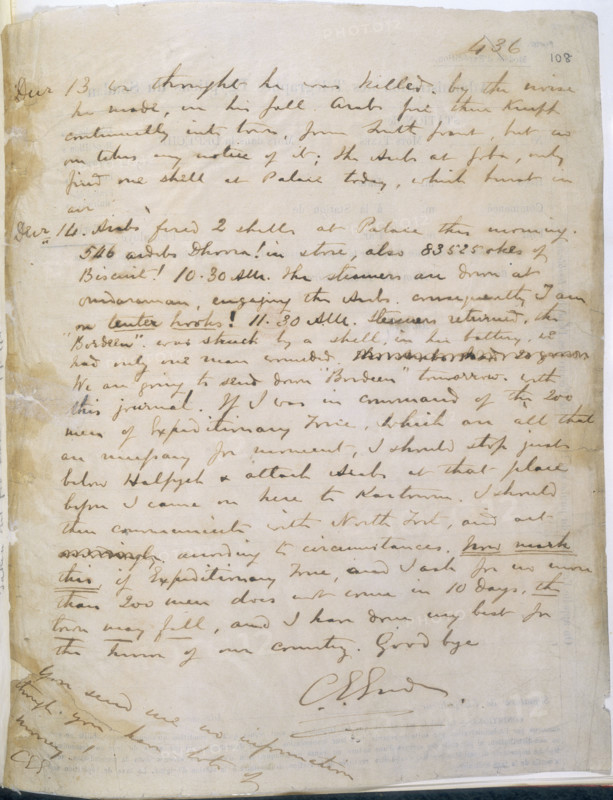 436
108
Decr 13 we thought he was killed by the noise
he made, in his fall. Arabs fire their Krupp
continually into town, from South front, but no
one takes any notice of it; The Arabs at Goba, only
fired one shell at Palace today, which burst in
air
Decr 14. Arabs fired 2 shells at Palace this morning.
546 ardebs Dhoora! in store, also 83525 okes of
Biscuit! 10.30 AM. The steamers are down at
Omdaraman, engaging the Arabs. consequently I am
"on tenter hooks! 11.30 AM. Steamers returned, the
"Bordeen" was struck by a shell, in her battery, we
had only one man wounded.
We are going to send down "Bordeen" tomorrow. with
this journal. If I was in command of the 200
men of Expeditionary Force, which are all that
are necessary for moment, I should stop just
below Halfyeh & attack Arabs at that place
before I came on here to Kartoum. I should
then communicate with North Fort, and act
according to circumstances. Now mark
this, if Expeditionary Force, and I ask for no more
than 200 men does not come in 10 days, the
town may fall, and I have done my best for
the honor of our country. Good bye
C. G. Gordon
You send me no information
though you have lots of
money!
CGG